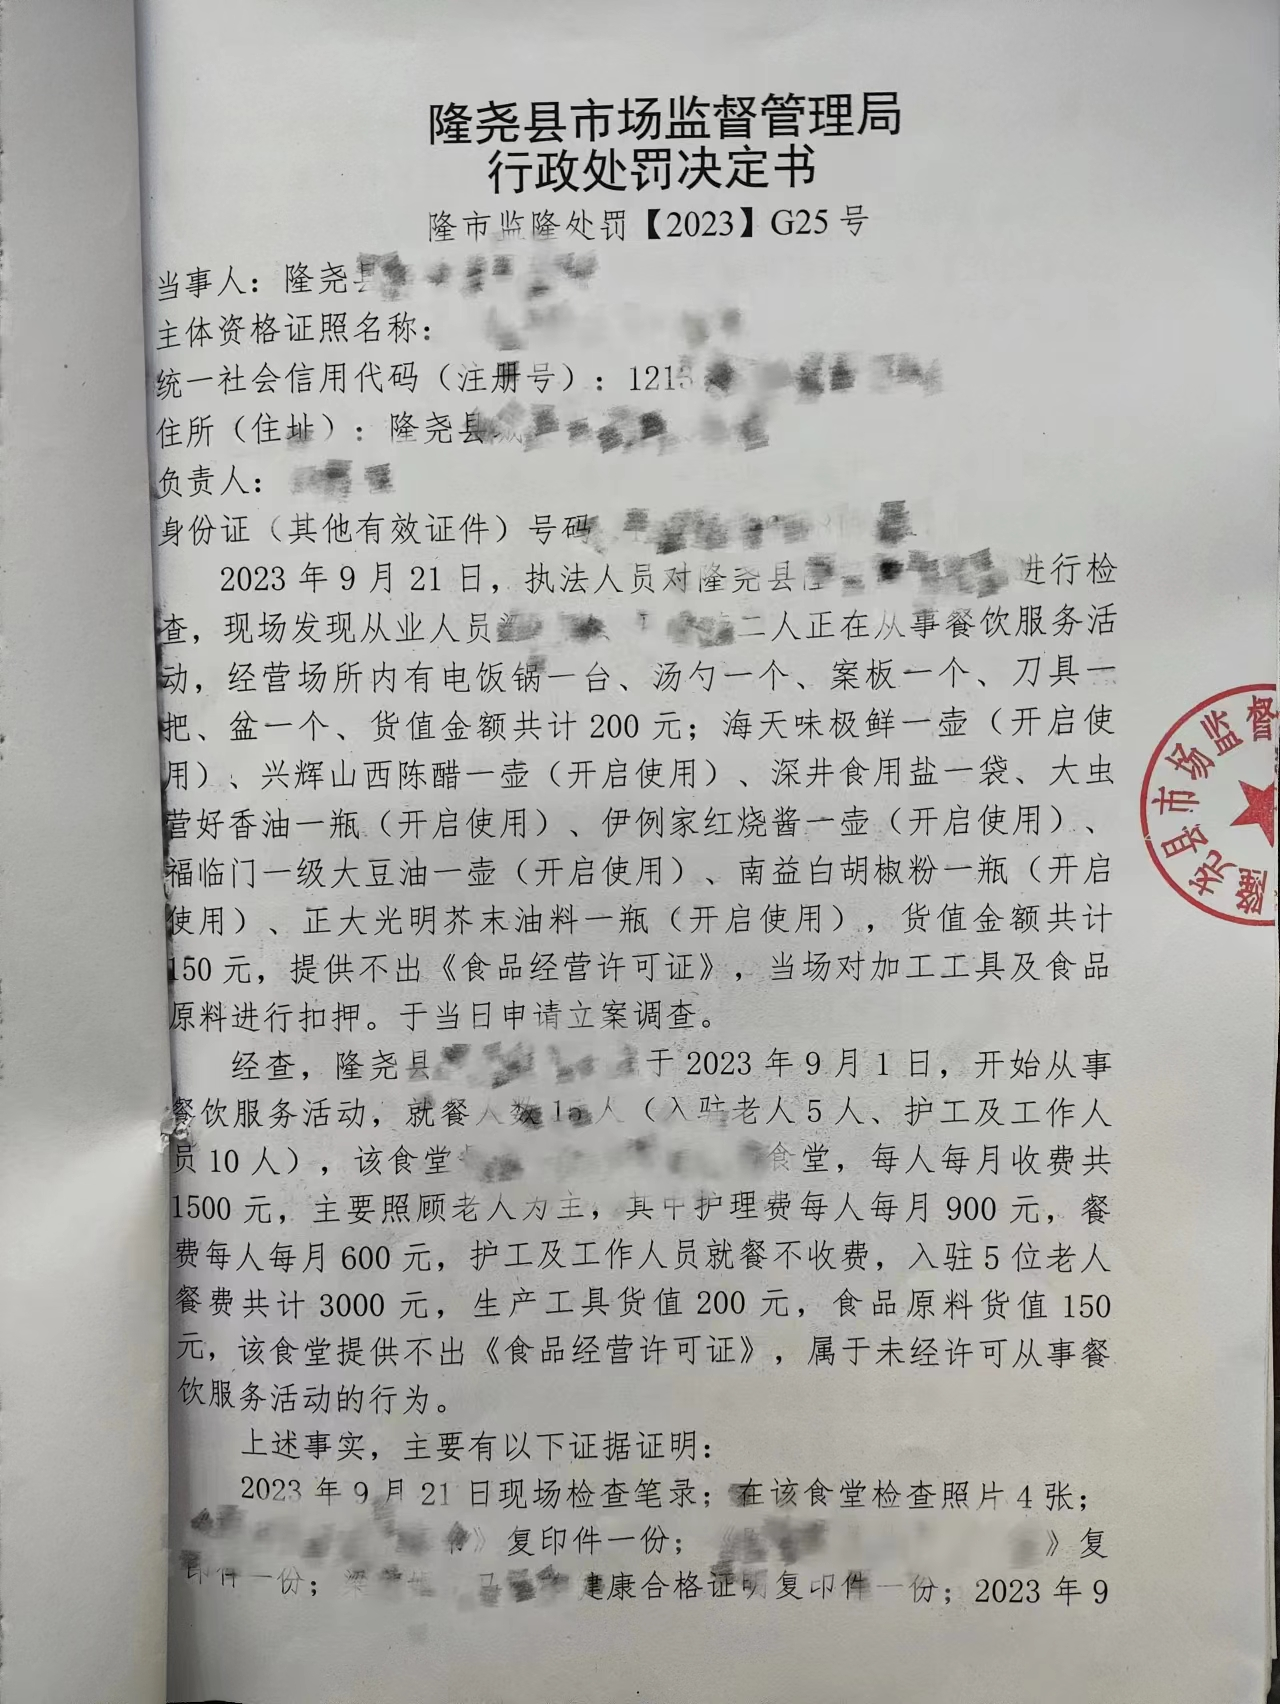 隆尧县市场监督管理局
行政处罚决定书
隆市监隆处罚【2023】G25号
当事人：隆尧县
主体资格证照名称：
统一社会信用代码（注册号）：1213
住所（住址）：隆尧县
负责人：
身份证（其他有效证件）号码
2023年9月21日，执法人员对隆尧县 进行检
查，现场发现从业人员 二人正在从事餐饮服务活
动，经营场所内有电饭锅一台、汤勺一个、案板一个、刀具一
把、盆一个、货值金额共计200元；海天味极鲜一壶（开启使
用）、兴辉山西陈醋一壶（开启使用）、深井食用盐一袋、大虫
营好香油一瓶（开启使用）、伊例家红烧酱一壶（开启使用）、
福临门一级大豆油一壶（开启使用）、南益白胡椒粉一瓶（开启
使用）、正大光明芥末油料一瓶（开启使用），货值金额共计
150元，提供不出《食品经营许可证》，当场对加工工具及食品
原料进行扣押。于当日申请立案调查。
经查，隆尧县 于2023年9月1日，开始从事
餐饮服务活动，就餐人数15人（入驻老人5人、护工及工作人
员10人），该食堂 食堂，每人每月收费共
1500元，主要照顾老人为主，其中护理费每人每月900元，餐
费每人每月600元，护工及工作人员就餐不收费，入驻5位老人
餐费共计3000元，生产工具货值200元，食品原料货值150
元，该食堂提供不出《食品经营许可证》，属于未经许可从事餐
饮服务活动的行为。
上述事实，主要有以下证据证明：
2023年9月21日现场检查笔录；在该食堂检查照片4张；
》复印件一份；《 》复
印件一份； 健康合格证明复印件一份；2023年9
隆尧县市场监督